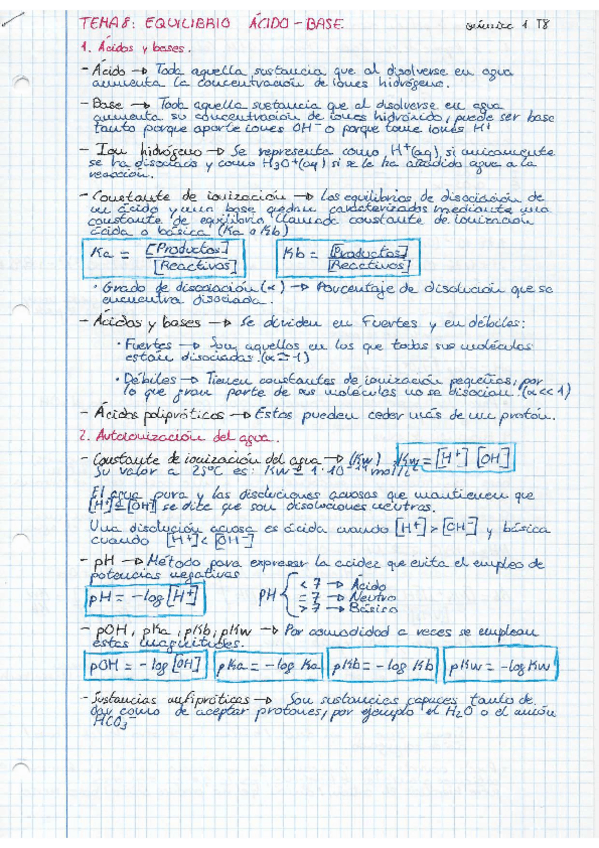 TEMA 8: EQUILIBRIO ÁCIDO-BASE química 1 T8
1. Ácidos y bases.
- Ácido → Toda aquella sustancia que al disolverse en agua
aumenta la concentración de iones hidrógeno.
- Base → Toda aquella sustancia que al disolverse en agua
aumenta su concentración de iones hidróxido, puede ser base
tanto porque aporte iones OH⁻ o porque tome iones H⁺
- Ion hidrógeno → Se representa como H⁺(aq) si únicamente
se ha disociado y como H₃O⁺(aq) si se le ha añadido agua a la
reacción.
- Constante de ionización → Los equilibrios de disociación de
un ácido y una base quedan caracterizados mediante una
constante de equilibrio llamada constante de ionización
ácida o básica (Ka o Kb)
Ka = [Productos] / [Reactivos] Kb = [Productos] / [Reactivos]
· Grado de disociación (α) → Porcentaje de disolución que se
encuentra disociada.
- Ácidos y bases → Se dividen en Fuertes y en débiles:
· Fuertes → Son aquellos en los que todas sus moléculas
están disociadas. (α = 1)
· Débiles → Tienen constantes de ionización pequeñas, por
lo que gran parte de sus moléculas no se disocian. (α << 1)
- Ácidos polipróticos → Estos pueden ceder más de un protón.
2. Autoionización del agua.
- Constante de ionización del agua → (Kw) Kw = [H⁺] [OH⁻]
Su valor a 25ºC es: Kw = 1·10⁻¹⁴ mol²/L²
El agua pura y las disoluciones acuosas que mantienen que
[H⁺] = [OH⁻] se dice que son disoluciones neutras.
Una disolución acuosa es ácida cuando [H⁺] > [OH⁻] y básica
cuando [H⁺] < [OH⁻]
- pH → Método para expresar la acidez que evita el empleo de
potencias negativas
pH = -log [H⁺] PH { < 7 → Ácido
= 7 → Neutro
> 7 → Básico
- pOH, pKa, pKb, pKw → Por comodidad a veces se emplean
estas magnitudes.
pOH = -log [OH⁻] pKa = -log Ka pKb = -log Kb pKw = -log Kw
- Sustancias anfipróticas → Son sustancias capaces tanto de
dar como de aceptar protones, por ejemplo el H₂O o el anión
HCO₃⁻